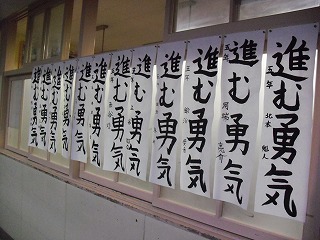 進む勇気
五年 北本
進む勇気
五年
進む勇気
進む勇気
進む勇気
進む勇気
進む勇気
進む勇気
進む勇気
進む勇気
進む勇気
進む勇気